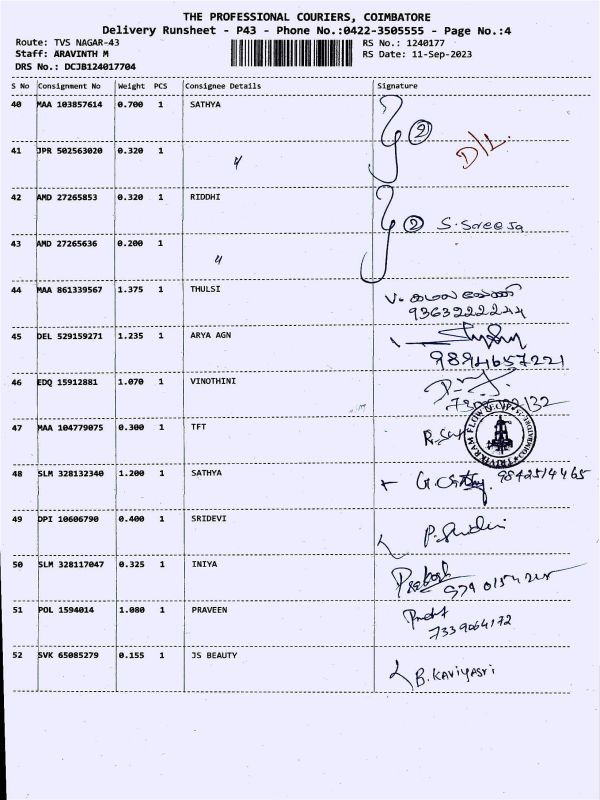 THE PROFESSIONAL COURIERS, COIMBATORE
Delivery Runsheet - P43 - Phone No.:0422-3505555 - Page No.:4
Route: TVS NAGAR-43 RS No.: 1240177
Staff: ARAVINTH M RS Date: 11-Sep-2023
DRS No.: DCJB124017704
S No Consignment No Weight PCS Consignee Details Signature
40 MAA 103857614 0.700 1 SATHYA 2
D/L.
41 JPR 502563020 0.320 1 "
42 AMD 27265853 0.320 1 RIDDHI 2 S.Sreeja
43 AMD 27265636 0.200 1 "
44 MAA 861339567 1.375 1 THULSI V.
9363222244
45 DEL 529159271 1.235 1 ARYA AGN
9894657221
46 EDQ 15912881 1.070 1 VINOTHINI
47 MAA 104779075 0.300 1 TFT
48 SLM 328132340 1.200 1 SATHYA 9842514465
49 DPI 10606790 0.400 1 SRIDEVI P.Sridevi
50 SLM 328117047 0.325 1 INIYA Prakash
51 POL 1594014 1.080 1 PRAVEEN
7339064172
52 SVK 65085279 0.155 1 JS BEAUTY B.Kaviyasri